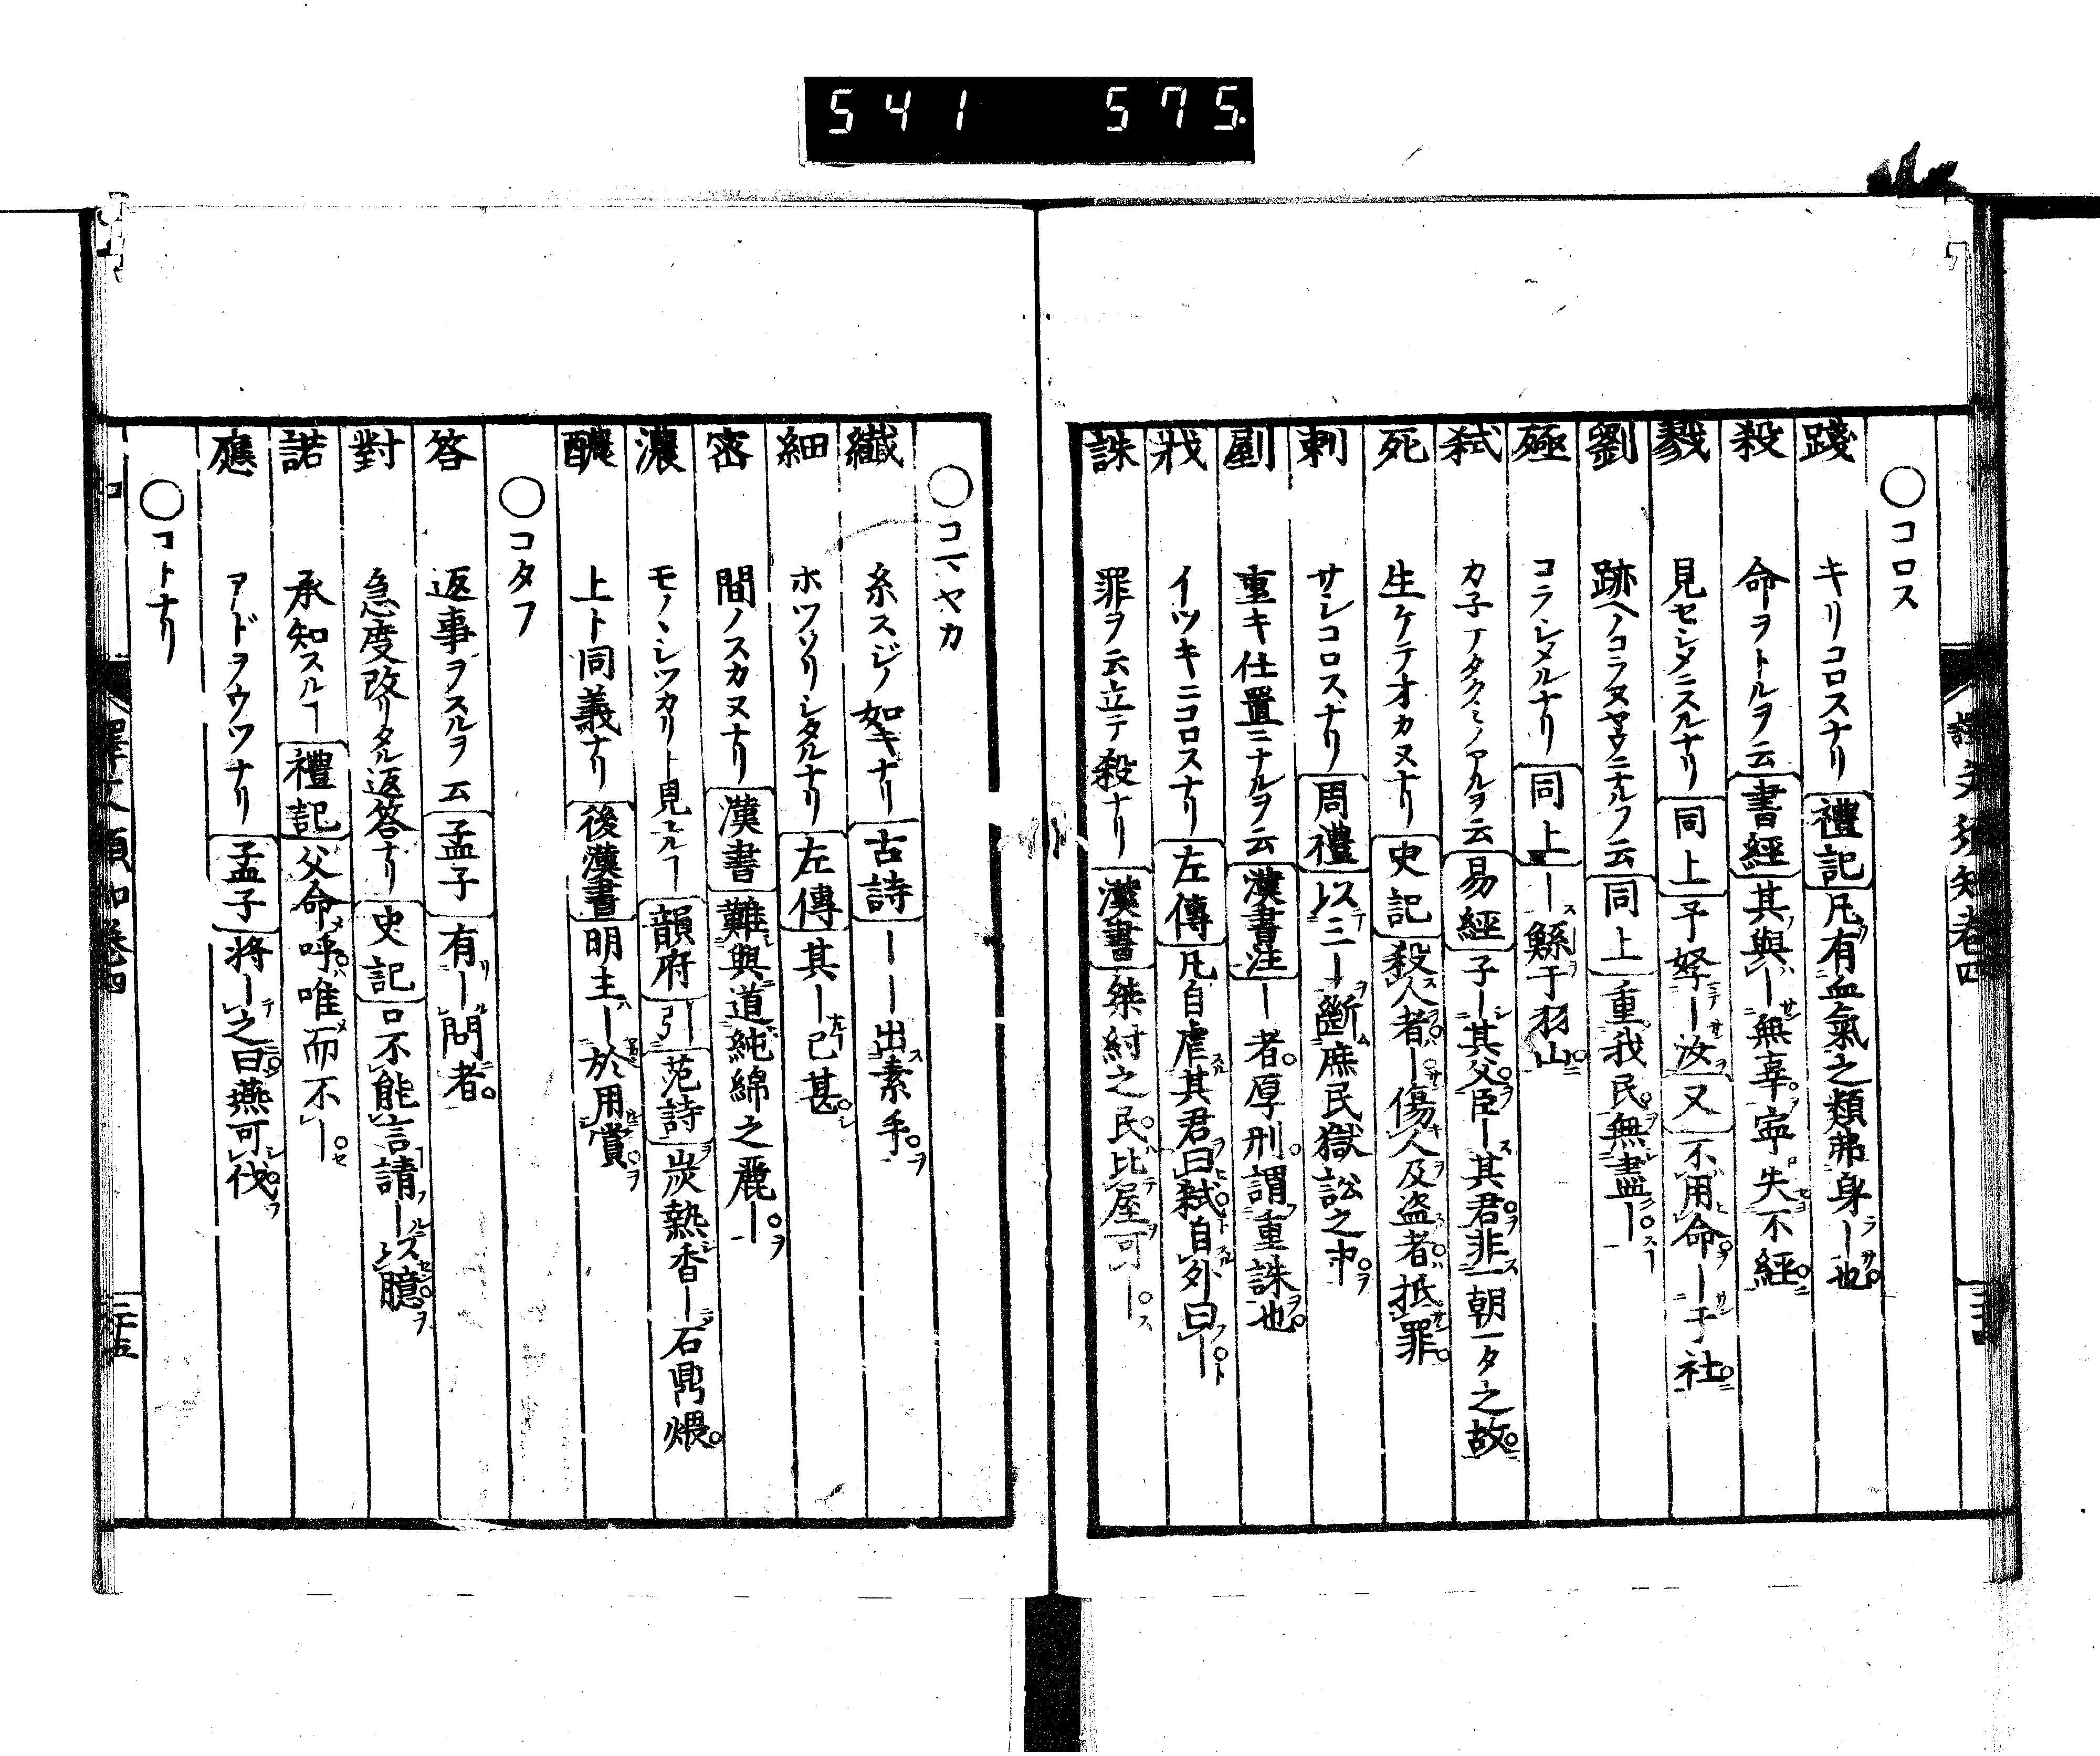 541 575.
譯文須知卷四
○コロス
踐 キリコロスナリ 禮記 凡有血氣之類弗身ー也
殺 命ヲトルヲ云 書經 其與ー無辜寧失不經
戮 見セシメニスルナリ 同上 予孥ー汝 又 不用命ー于社
劉 跡ヘノコラヌヤウニナルヲ云 同上 重我民無盡ー
殛 コラシメルナリ 同上 ー鯀于羽山
弑 カ子テタクミノアルヲ云 易經 子ー其父臣ー其君非一朝一夕之故
死 生ケテオカヌナリ 史記 殺人者ー傷人及盗者抵罪
刺 サシコロスナリ 周禮 以三ー斷庶民獄訟之中
剭 重キ仕置ニナルヲ云 漢書注 ー者厚刑謂重誅也
戕 イツキニコロスナリ 左傳 凡自虐其君曰弑自外曰ー
誅 罪ヲ云立テ殺ナリ 漢書 桀紂之民比屋可ー
○コマヤカ
纎 糸スジノ如キナリ 古詩 ーー出素手
細 ホツソリシタルナリ 左傳 其ー已甚
密 間ノスカヌナリ 漢書 難與道純綿之麗ー
濃 モノヽシツカリト見ユルヿ 韻府 引 范詩 炭熱香ー石鼎煨
醲 上ト同義ナリ 後漢書 明主ー於用賞
○コタフ
答 返事ヲスルヲ云 孟子 有ー問者
對 急度改リタル返答ナリ 史記 口不能言請ー以臆
諾 承知スルヿ 禮記 父命呼唯而不ー
應 アドヲウツナリ 孟子 将ー之曰燕可伐
○コトナリ
譯文須知卷四 コ 二十五